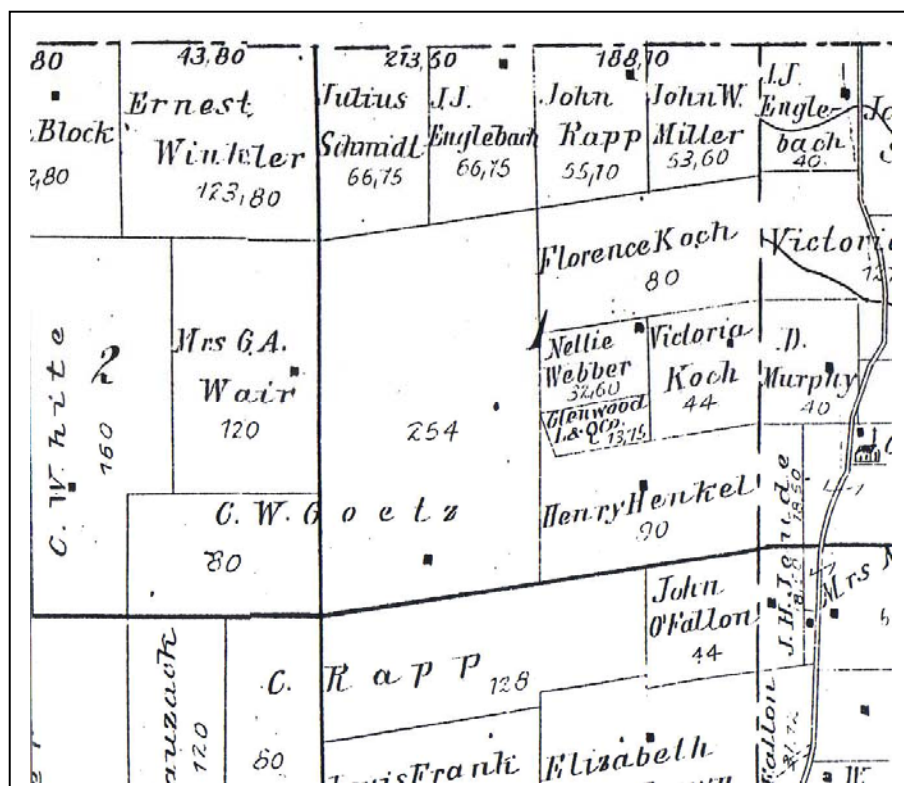 80
43,80
213,60
188,10
Block
2,80
Ernest
Winkler
123,80
Julius
Schmidt
66,75
J.J.
Englebach
66,75
John
Rapp
55,10
John W.
Miller
53,60
J.J.
Engle-
bach
40
Florence Koch
80
Victoria
C. W. White
160
2
Mrs G.A.
Wair
120
254
1
Nellie
Webber
32,60
Glenwood
L. & Q Co.
13,75
Victoria
Koch
44
D.
Murphy
40
C. W. Goetz
80
Henry Henkel
90
J. H. Jende
18.50
Mrs
John
O'Fallon
44
C. Rapp
128
auzack
120
60
Louis Frank
Elizabeth
Fallon
W.